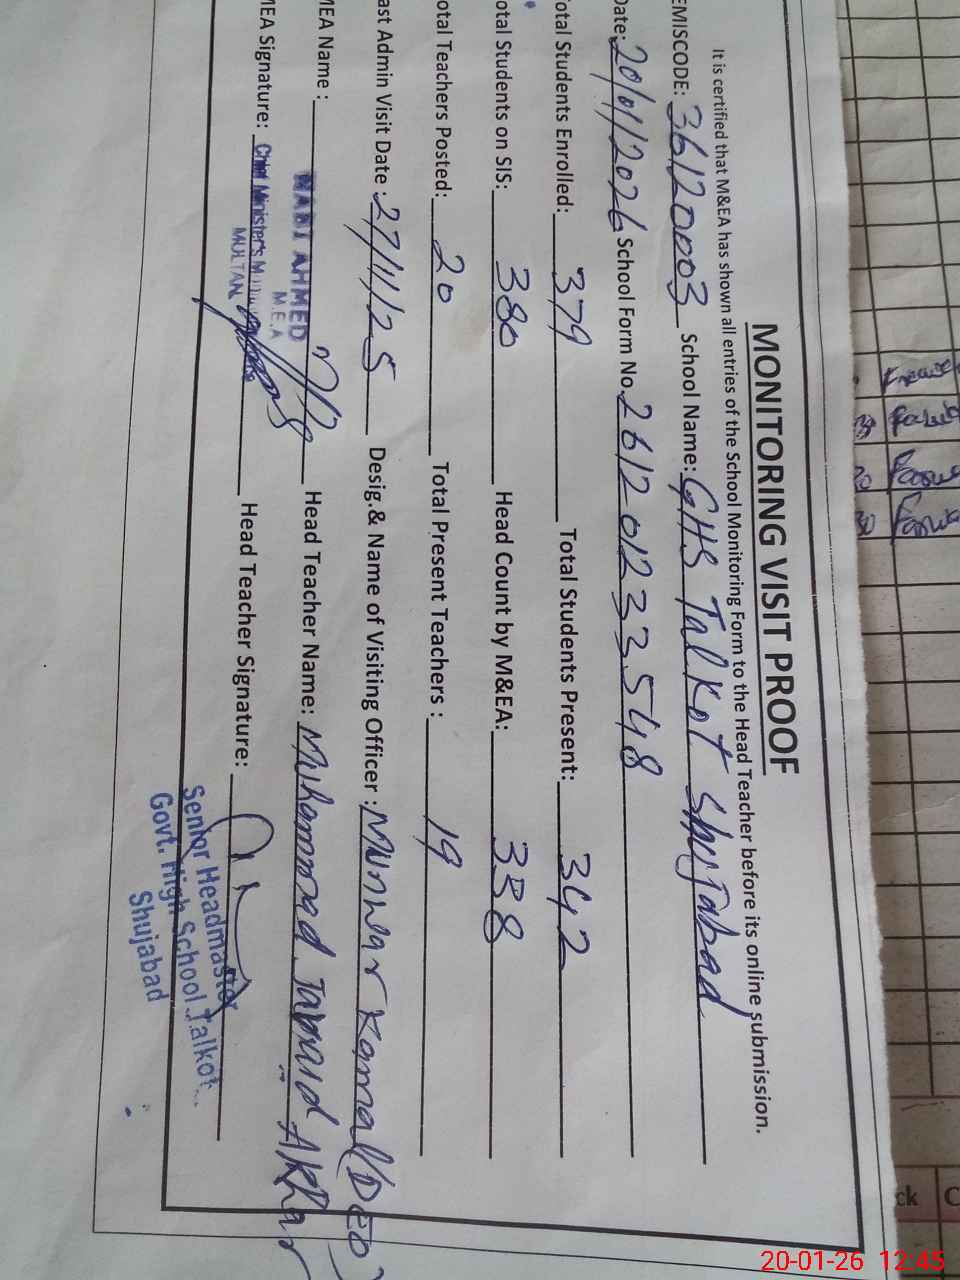 MONITORING VISIT PROOF
It is certified that M&EA has shown all entries of the School Monitoring Form to the Head Teacher before its online submission.
EMISCODE: 36120003 School Name: GHS Talkot Shujabad
Date: 20/01/2026 School Form No. 261201233548
Total Students Enrolled: 379 Total Students Present: 342
Total Students on SIS: 380 Head Count by M&EA: 338
Total Teachers Posted: 20 Total Present Teachers : 19
ast Admin Visit Date : 27/11/25 Desig.& Name of Visiting Officer : Munwar Kamal (DEO)
MEA Name : NABI AHMED Head Teacher Name: Muhammad Akhar
M.E.A
MEA Signature: Chief Minister's Head Teacher Signature:
MULTAN
Senior Headmaster
Govt. High School Talkot
Shujabad
ck
20-01-26 12:45